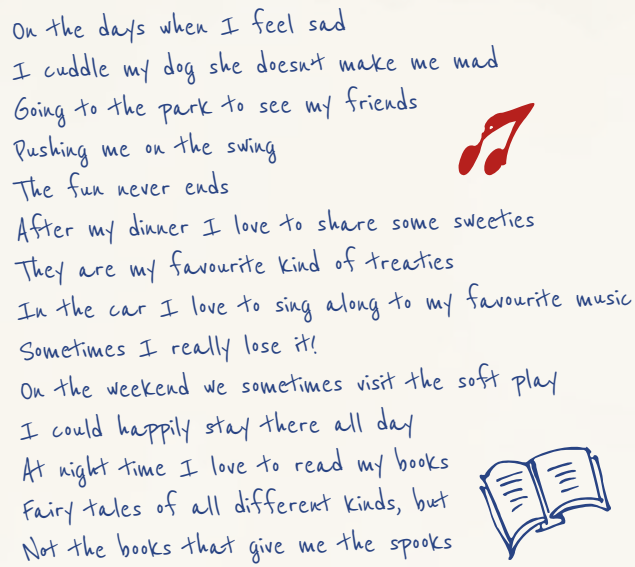 On the days when I feel sad
I cuddle my dog she doesnt make me mad
Going to the park to see my friends
Pushing me on the swing
The fun never ends
After my dinner I love to share some sweeties
They are my favourite kind of treaties
In the car I love to sing along to my favourite music
Sometimes I really lose it!
On the weekend we sometimes visit the soft play
I could happily stay there all day
At night time I love to read my books
Fairy tales of all different kinds, but
Not the books that give me the spooks